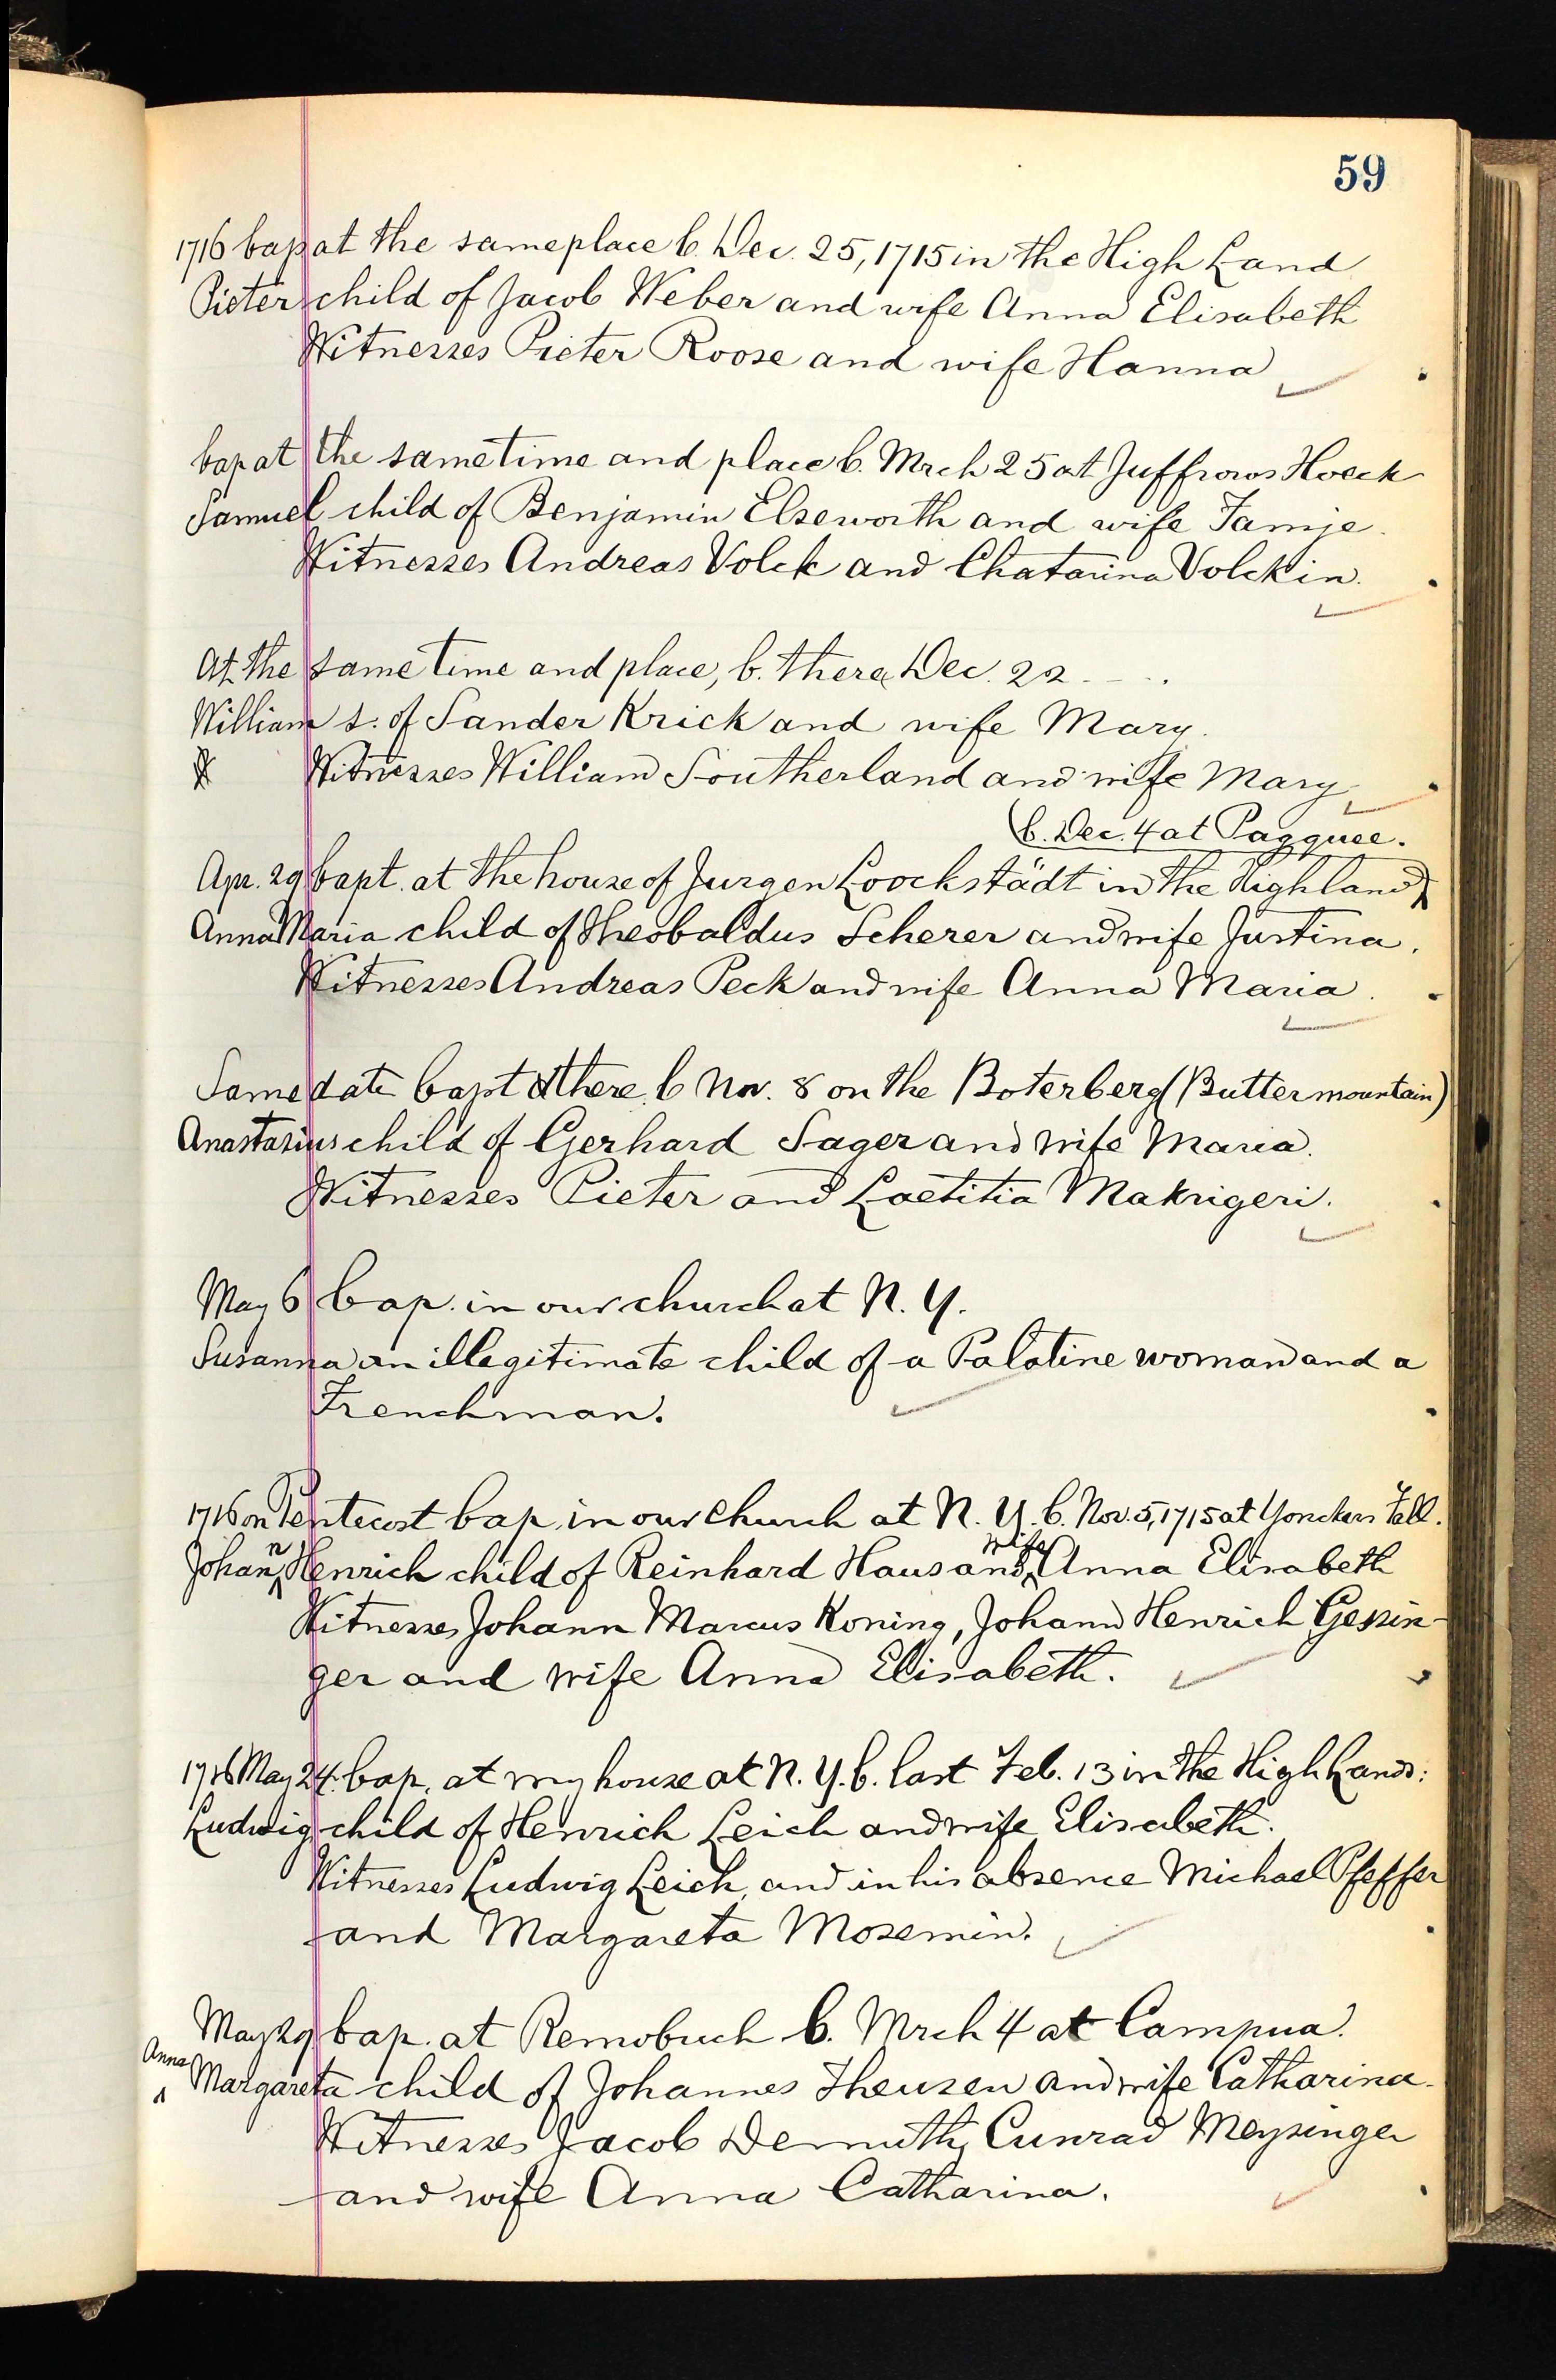 59
1716 bap at the same place b. Dec. 25, 1715 in the High Land
Pieter child of Jacob Weber and wife Anna Elisabeth
Witnesses Pieter Roose and wife Hanna
bap at the same time and place b. Mrch 25 at Juffrows Hoeck
Samuel child of Benjamin Elseworth and wife Tamje.
Witnesses Andreas Volck and Chatarina Volckin.
At the same time and place, b. there Dec. 22 - - .
William s. of Sander Krick and wife Mary.
Witnesses William Southerland and wife Mary
(b. Dec. 4 at Pagquee.
Apr. 29 bapt. at the house of Jurgen Loockstädt in the Highland)
Anna Maria child of Theobaldus Scherer and wife Justina.
Witnesses Andreas Peck and wife Anna Maria.
Same date bapt there b Nov. 8 on the Boterberg (Butter mountain)
Anastasius child of Gerhard Sager and wife Maria.
Witnesses Pieter and Laetitia Makrigeri.
May 6 bap. in our church at N. Y.
Susanna an illegitimate child of a Palatine woman and a
Frenchman.
1716 on Pentecost bap. in our church at N. Y. b. Nov. 5, 1715 at Yonckers Fall.
Johann Henrich child of Reinhard Haus and wife Anna Elisabeth
Witnesses Johann Marcus Koning, Johann Henrich Gessin-
ger and wife Anna Elisabeth.
1716 May 24. bap. at my house at N. Y. b. last Feb. 13 in the High Lands:
Ludwig child of Henrich Leich and wife Elisabeth.
Witnesses Ludwig Leich, and in his absence Michael Pfeffer
and Margareta Mosemin.
May 29 bap. at Remobuch b. Mrch 4 at Campua.
Anna Margareta child of Johannes Theusen and wife Catharina.
Witnesses Jacob Demuth, Cunrad Meysinger
and wife Anna Catharina.